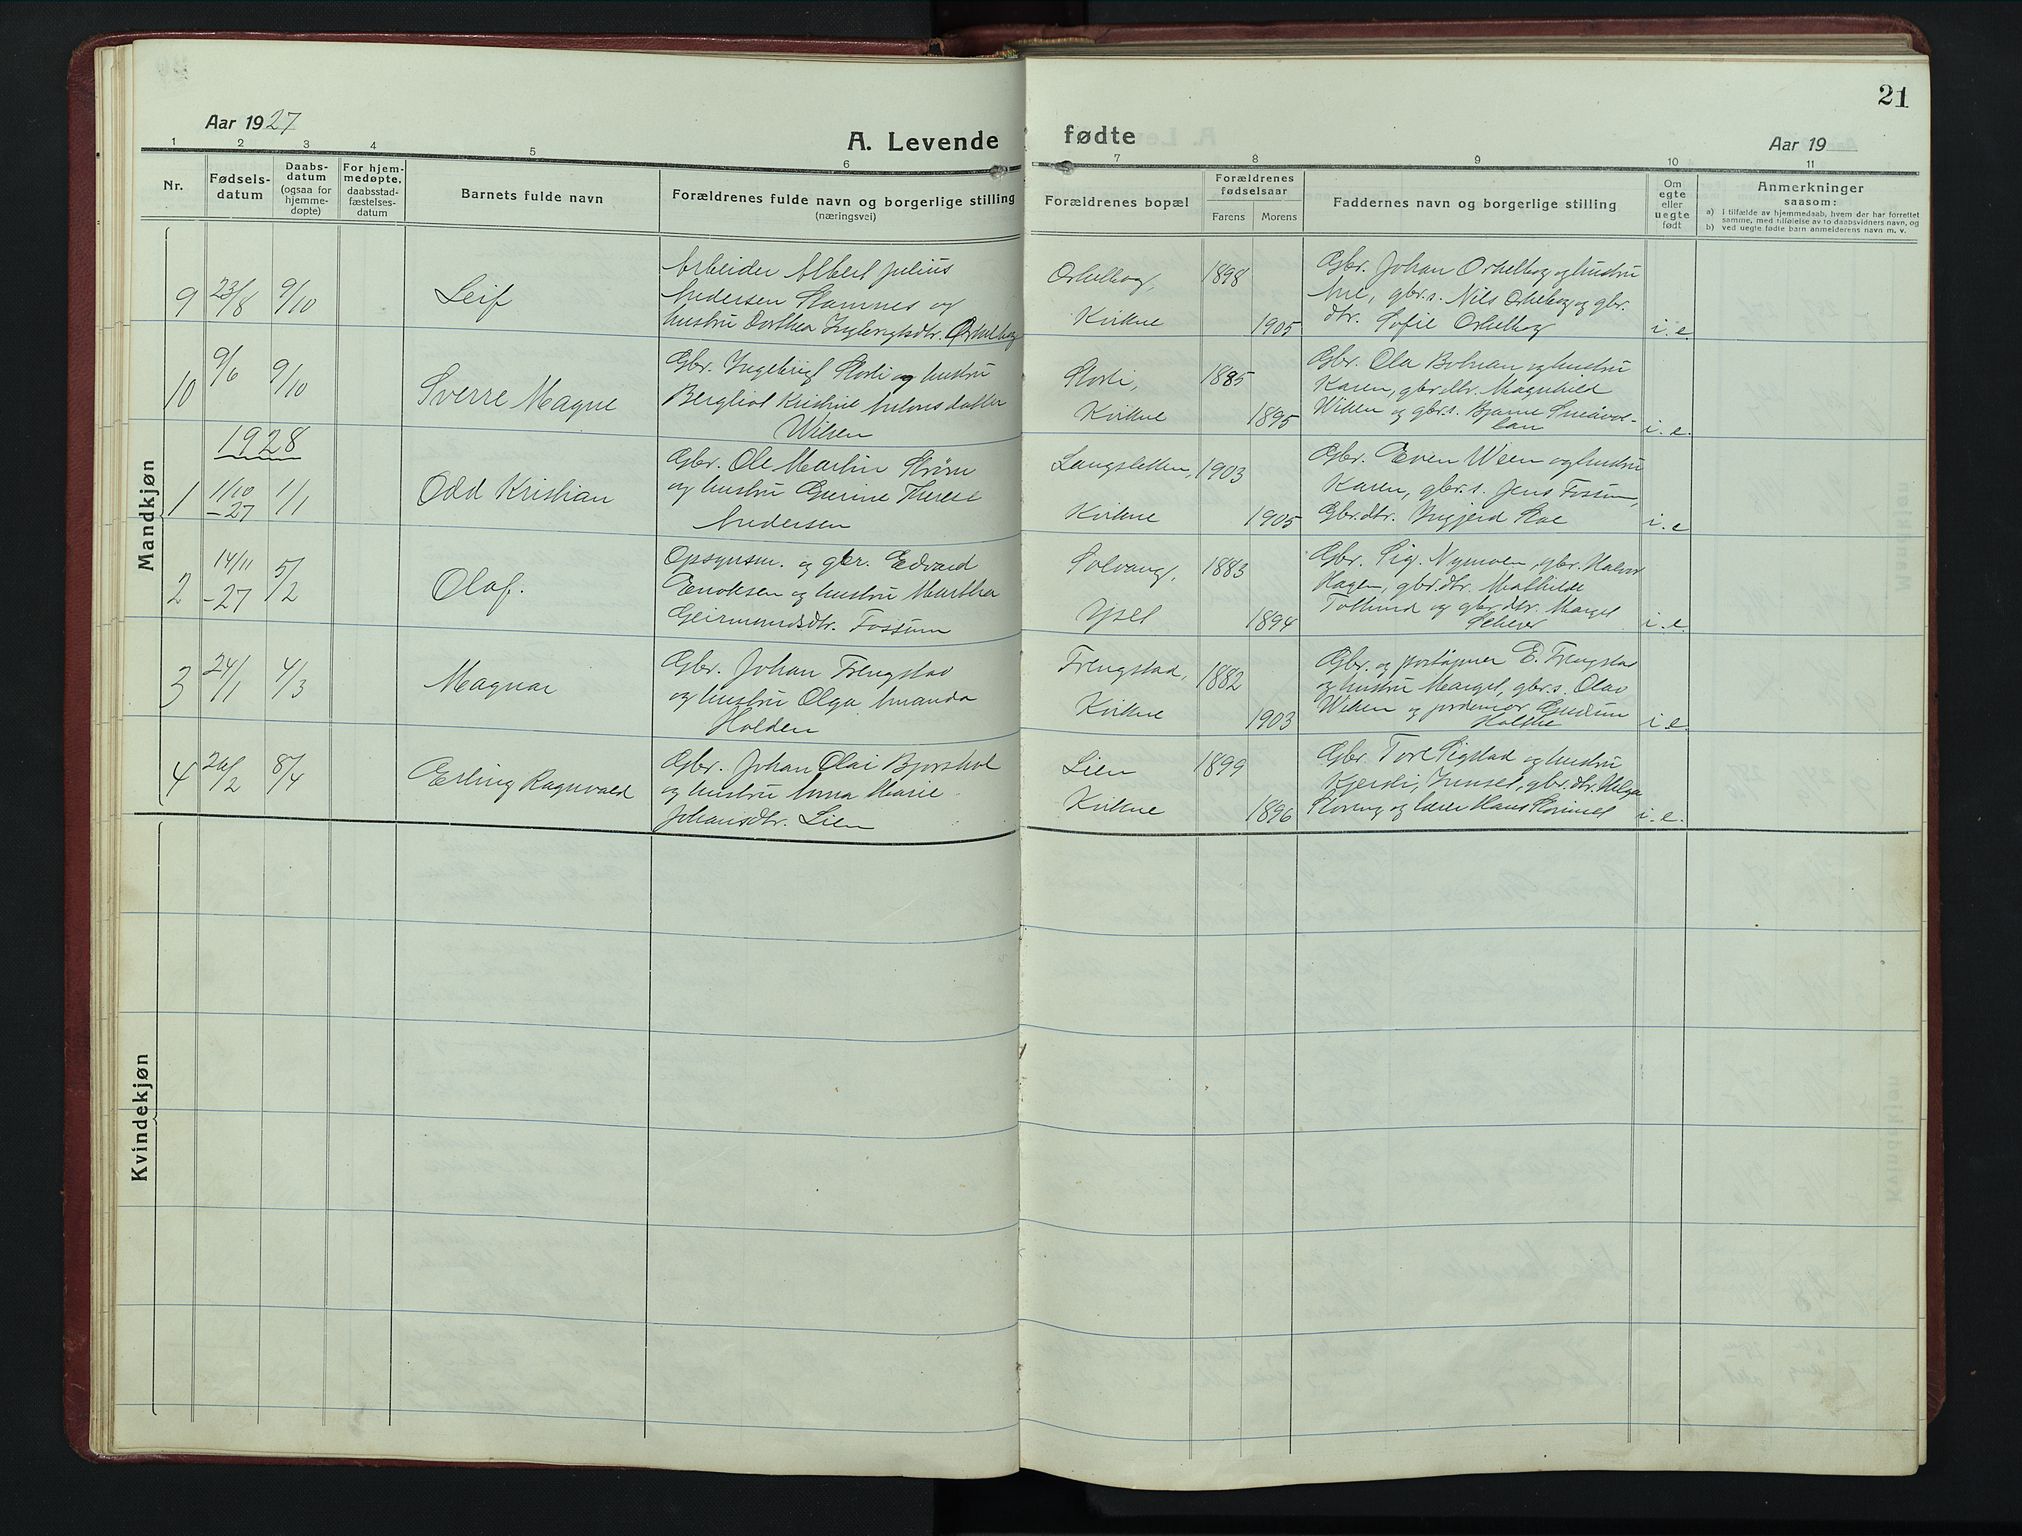 21
Aar 1927
A. Levende fødte
Aar 19
1 2 3 4 5 6 7 8 9 10 11
Nr.
Fødsels-
datum
Daabs-
datum
(ogsaa for
hjemme-
døpte)
For hjem-
medøpte,
daabsstad-
fæstelses-
datum
Barnets fulde navn
Forældrenes fulde navn og borgerlige stilling
(næringsvei)
Forældrenes bopæl
Forældrenes
fødselsaar
Farens Morens
Faddernes navn og borgerlige stilling
Om
egte
eller
uegte
født
Anmerkninger
saasom:
a) I tilfælde av hjemmedaab, hvem der har forrettet
samme, med tilføielse av to daabsvidners navn, og
b) ved uegte fødte barn anmelderens navn m. v.
Mandkjøn
9 23/8 9/10 Leif
Arbeider Albert Julius
Andersen Stamnes og
hustru Dorthea Ingebrigtsdtr. Orkelbog
Orkelbog,
Kvikne
1898
1905
Gbr. Johan Orkelbog og hustru
Ane, gbr.s. Nils Orkelbog og gbr.
dtr. Sofie Orkelbog
i. e.
10 9/6 9/10 Sverre Magne
Gbr. Ingebrigt Storli og hustru
Bergliot Kristine Antonsdatter
Wilsen
Storli,
Kvikne
1885
1895
Gbr. Ola Bolnan og hustru
Karen, gbr.dtr. Magnhild
Wilsen og gbr.s. Bjarne Småvol-
dan
i. e.
1928
1 11/10 1/1 Odd Kristian
-27
Gbr. Ole Martin Strøm
og hustru Gurine Therese
Andersen
Langsletten,
Kvikne
1903
1905
Gbr. Even Ween og hustru
Karen, gbr.s. Jens Fossum,
Gbr.dtr. Ingjerd Roe
i. e
2 14/11 5/2 Olaf.
-27
Opsynsm. og gbr. Edvard
Enoksen og hustru Martha
Geirmundsdtr. Fossum
Solvang,
Yset
1883
1894
Gbr. Sig. Nymoen, gbr. Halvor
Hagen, gbr.dtr. Mathilde
og gbr.dtr. Marget
i. e.
3 24/1 4/3 Magnar
Gbr. Johan Frengstad
og hustru Olga Amanda
Holden
Frengstad,
Kvikne
1882
1903
Gbr. og poståpner E. Frengstad
og hustru Marget, gbr.s. Olav
Wilsen og jordemor Gudrun
i. e.
4 26/2 8/4 Erling Ragnvald
Gbr. Johan Olai Bjørshol
og hustru Anna Marie
Johansdtr. Lien
Lien
Kvikne
1899
1896
Gbr. Tore Sigstad og hustru
Kjersti, Innset, gbr.dtr. Helga
Storeng og lærer Hans
i. e.
Kvindekjøn